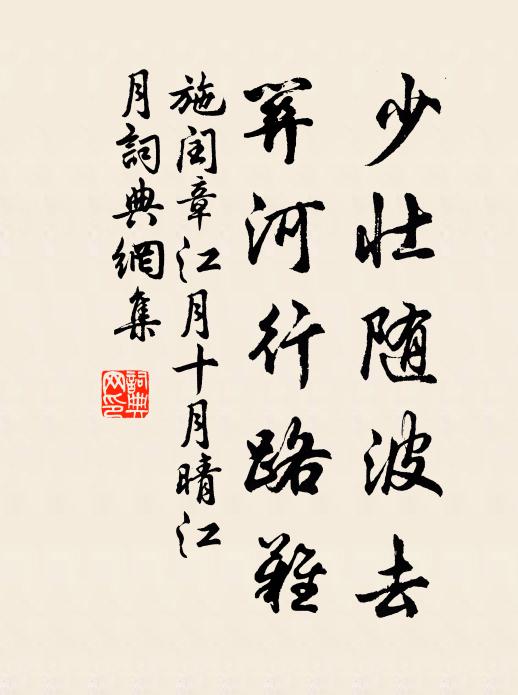 少壮随波去
关河行路難
施閏章江月十月晴江
月詞典網集
詞典
网印